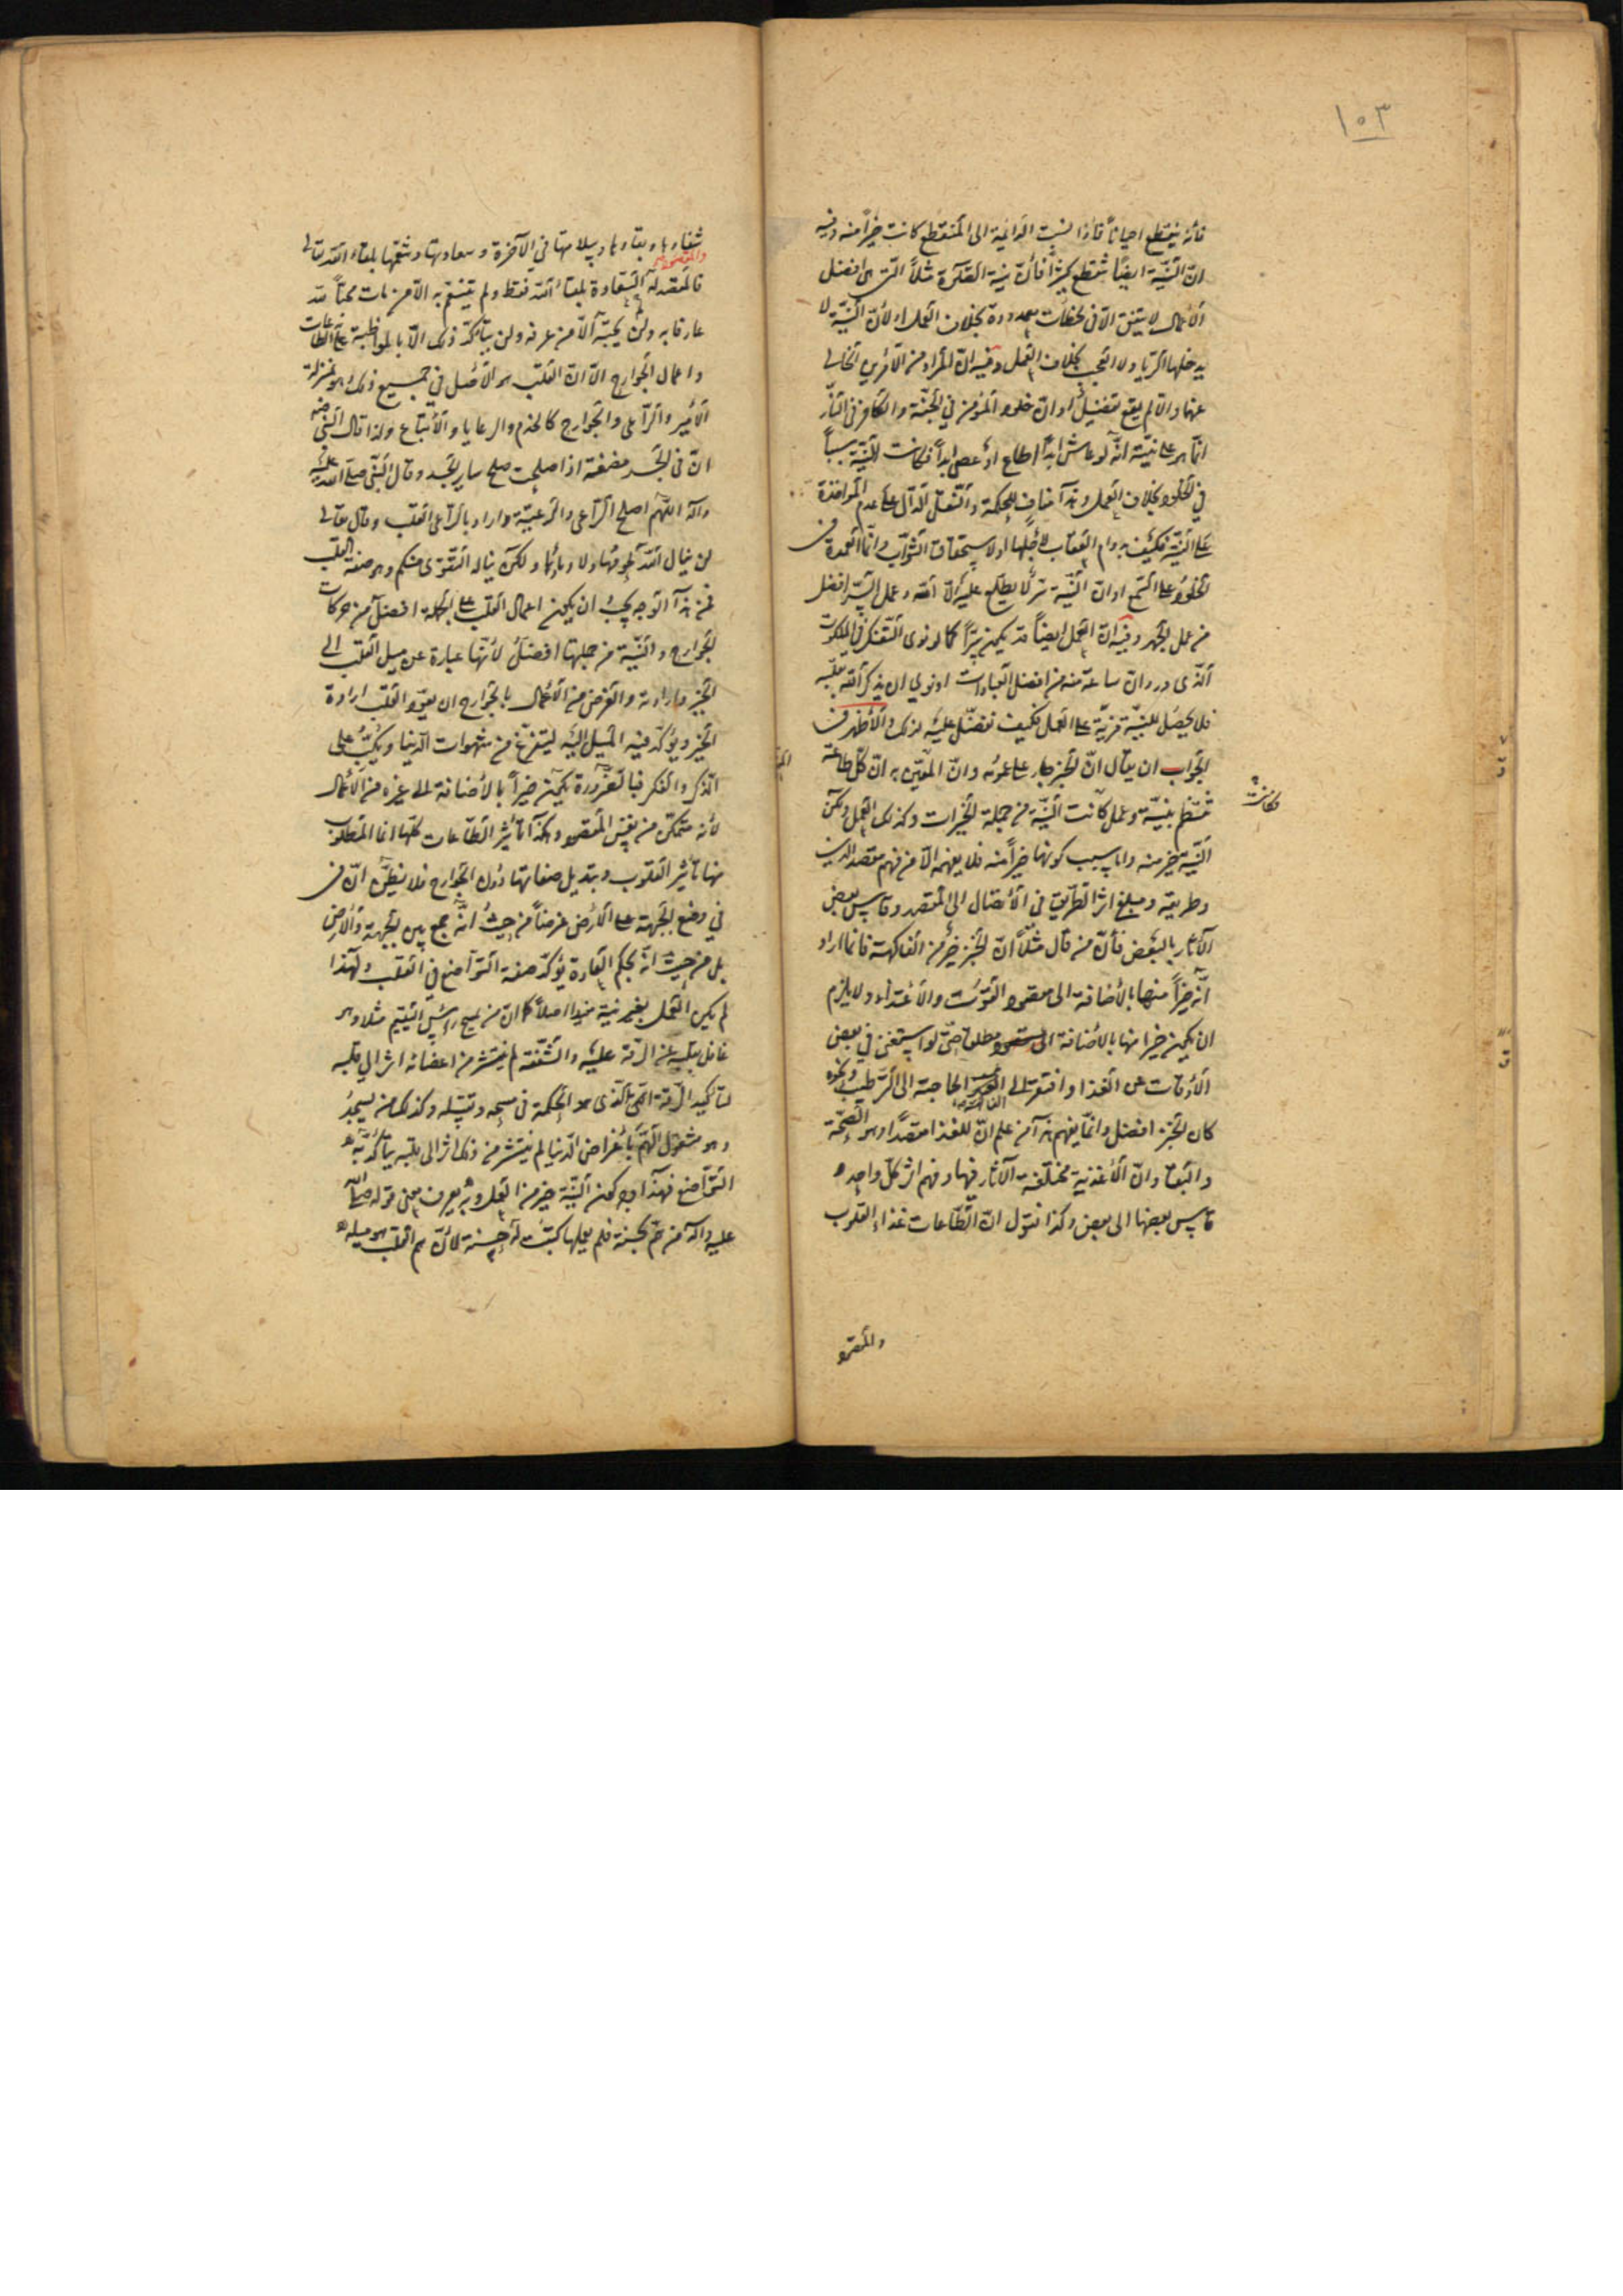 ١٥٣
فانّه ينقطع احياناً فاذا نسبت الدائمة الى المنقطع كانت خيراً منه وفيه
انّ النيّة ايضاً تنقطع كثيراً فانّ نية الصّلوة مثلاً التى هى افضل
الأعمال لا يتفق الّا فى لحظات معدودة بخلاف العمل اولأنّ النيّة لا
يدخلها الرّيا ولا العجب بخلاف العمل وفيه انّ المراد من الأمرين الخالى
عنها والّا لم يقع تفضيل اوانّ خلود المؤمن فى الجنّة والكافر فى النّار
انّما هو على نيّته انّه لو عاش ابداً اطاع او عصى ابداً فكانت النيّة سبباً
فى الخلود بخلاف العمل وهذا مناف للحكمة والنّقل الدّال على عدم المؤاخذة
على النيّة فكيف بدوام العقاب لأجلها اولاستحقاق الثّواب وانّما العمدة فى
الخلود على السّمع اوانّ النيّة سرّ لا يطّلع عليه الّا الله وعمل السّر افضل
من عمل الجهر وفيه انّ العمل ايضاً قد يكون سرّاً كما لو نوى التّفكر فى الملكوت
الّذى ورد انّ ساعة منه من افضل العبادات او نوى ان يذكر الله بقلبه
فلا يحصل للنيّة مزيّة على العمل فكيف تفضّل عليه لذلك والأظهر فى
الجواب ان يقال انّ الخبر جار على عمومه وانّ المعنى به انّ كلّ طاعة
تنتظم بنيّة وعمل كانت النيّة من جملة الخيرات وكذلك العمل ولكن
فكانت
النيّة خير منه وامّا سبب كونها خيراً منه فلا يفهمه الّا من فهم مقصد الدين
وطريقه ومبلغ اثر الطّريق فى الأتصال الى المقصد وقاس بعض
الآثار بالبعض فانّ من قال مثلاً انّ الخبز خير من الفاكهة فانّما اراد
انّه خيراً منها بالأضافة الى مقصود القوت والاغتذاء ولا يلزم
ان يكون خيرا منها بالاضافة الى مقصود مطلق حتّى لو استغنى فى بعض
الأوقات عن الغذا وافتقر الى الفاكهة الحاجة الى الترطيب ونحوه
كان الخبز افضل وانّما يفهم هذا من علم انّ للغذا مقصدا وهو الصّحة
والبقا وانّ الأغذية مختلفة الآثار فيها وفهم اثر كلّ واحد و
قاس بعضها الى بعض وكذا نقول انّ الطّاعات غذاء القلوب
والمقصود
شفاوها وبقاوها وسلامتها فى الآخرة وسعادتها وتنعّمها بلقاء الله تعالى
فالمقصد لذّة السّعادة بلقاء الله فقط ولم يتنعّم به الّا من مات محبّاً لله
عارفا به ولن يحبّه الّا من عرفه ولن يتأكّد ذلك الّا بالمواظبة على الطاعات
واعمال الجوارح الّا انّ القلب هو الأصل فى جميع ذلك وهو بمنزلة
الأمير والرّاعى والجوارح كالخدم والرعايا والأتباع ولذا قال النّبى
انّ فى الجسد مضغة اذا صلحت صلح ساير الجسد وقال النّبى صلّى الله عليه
وآله اللّهم اصلح الرّاعى والرّعيّة واراد بالرّاعى القلب وقال تعالى
لن ينال الله لحومها ولا دماؤها ولكن يناله التّقوى منكم وهو صفة القلب
فمن هذا الوجه يجب ان يكون اعمال القلب على الجملة افضل من حركات
الجوارح والنيّة من جملتها افضل لأنّها عبارة عن ميل القلب الى
الخير وارادته والغرض من الأعمال بالجوارح ان يعوّد القلب ارادة
الخير ويؤكّد فيه الميل اليه ليتفرغ من شهوات الدّنيا ويكبّ على
الذّكر والفكر فبالضّرورة يكون خيراً بالأضافة الى غيره من الأعمال
لأنه متمكّن من نفس المقصود وهكذا تأثير الطّاعات كلّها انما المطلوب
منها تأثير القلوب وتبديل صفاتها دون الجوارح فلا تظنّن انّ فى
فى وضع الجبهة على الأرض غرضاً من حيث انّه جمع بين الجبهة والأرض
بل من حيث انّه بحكم العادة يؤكّد صفة التّواضع فى القلب ولهذا
لم يكن العمل بغير نية مفيدا اصلاً كما انّ من يمسح رأس اليتيم مثلا وهو
غافل بقلبه عن الرّقة عليه والشّفقة لم ينتشر من اعضائه اثر الى قلبه
لتاكيد الرّقة الّتى الّذى هو الحكمة فى مسحه وتقبيله وكذلك من يسجد
وهو مشغول الهمّ بأغراض الدّنيا لم ينتشر من ذلك اثر الى قلبه يتأكّد به
التّواضع فهذا وجه كون النيّة خير من العمل وبه يعرف معنى قوله صلّى الله
عليه وآله من همّ بحسنة فلم يعملها كتبت له حسنة لأنّ همّ القلب هو ميله